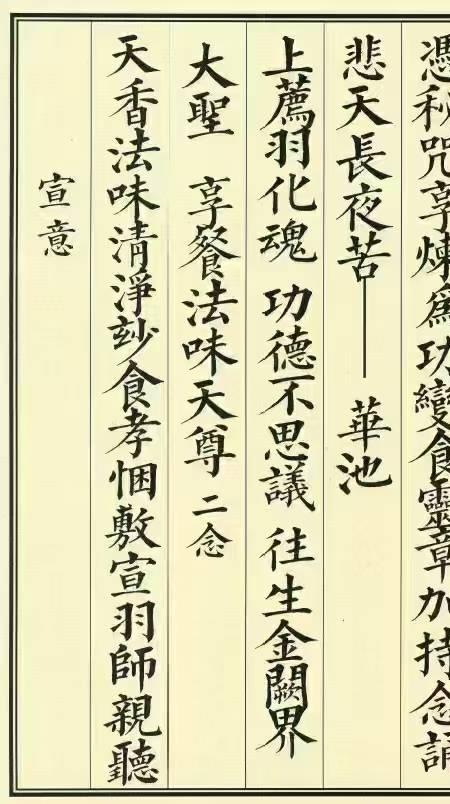 憑秘咒享煉為功變食靈章加持念誦
悲天長夜苦—— 華池
上薦羽化魂 功德不思議 往生金闕界
大聖 享餐法味天尊 二念
天香法味清淨玅食孝悃敷宣羽師親聽
宣意